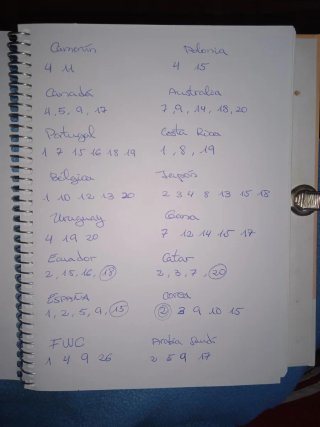 Camerún Polonia
4 11 4 15
Canadá Australia
4, 5, 9, 17 7, 9, 14, 18, 20
Portugal Costa Rica
1 7 15 16 18 19 1, 8, 19
Bélgica Japón
1 10 12 13 20 2 3 4 8 13 15 18
Uruguay Gana
4 19 20 7 12 14 15 17
Ecuador Catar
2, 15, 16, 18 2, 3, 7, 20
ESPAÑA Corea
1, 2, 5, 9, 15 2 3 9 10 15
FWC Arabia Saudí
1 4 9 26 2 5 9 17